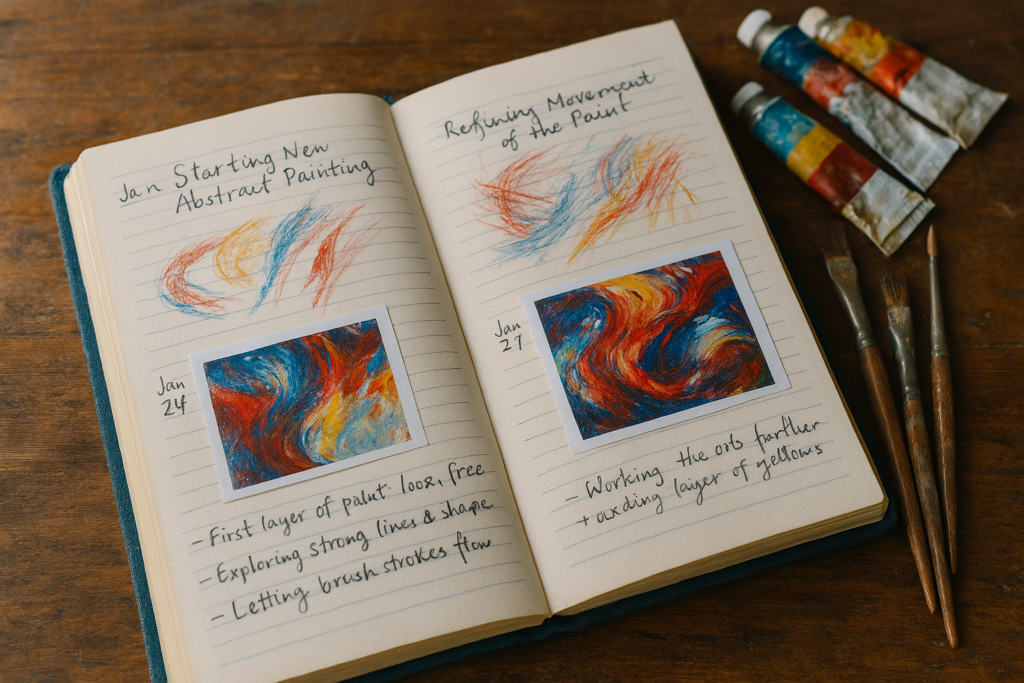 Jan Starting New
Abstract Painting
Jan
24
- First layer of paint loos, free
- Exploring strong lines & shape
- Letting brush strokes flow
Refining Movement
of the Paint
Jan
27
- Working the further
+ layer of yellows